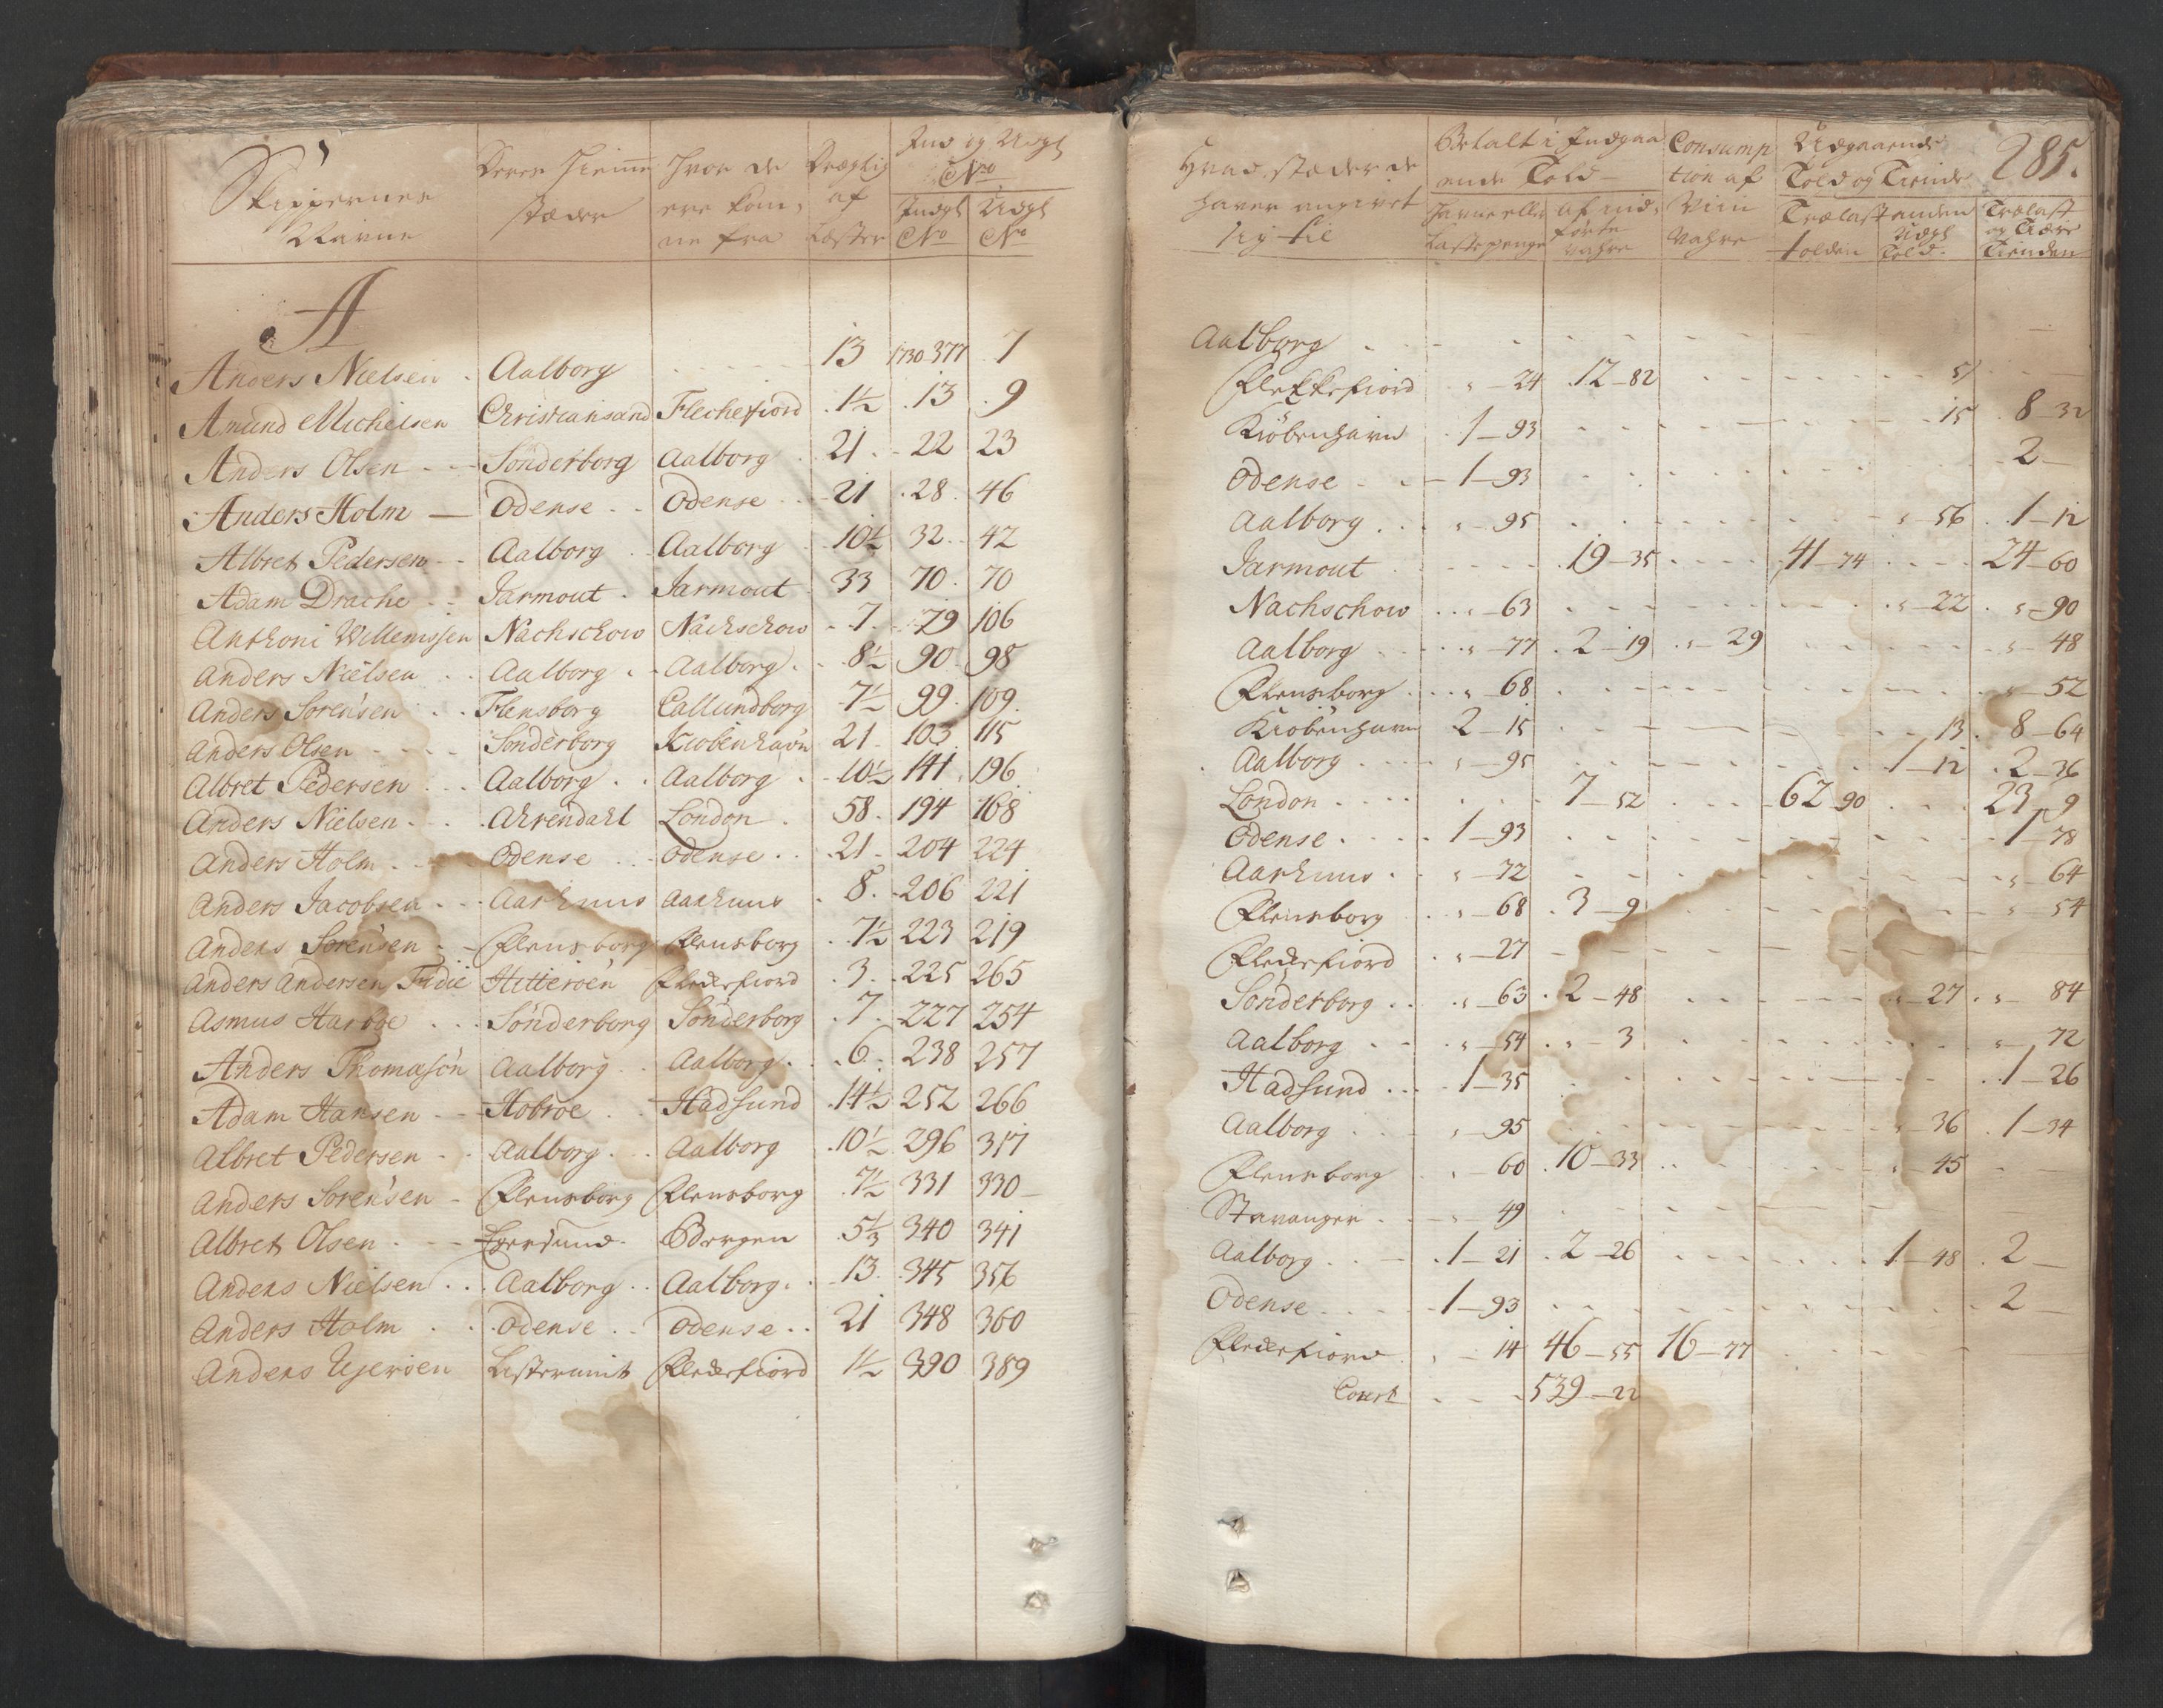 Skippernes Navne | Deres Hiemstæder | Hvor de ere komne fra | Drægtig af Læster | Ind og Udgl No | Indgl No | Udgl No
A
Anders Nielsen . Aalborg . . . . . 13 1730 377 7
Amund Michelsen Christiansand Flechefiord . 1½ . 13 . 9
Anders Olsen - - - Sönderborg Aalborg . 21 . - 22 23
Anders Holm — Odense - - Odense - - 21 . 28 . 46
Albret Pedersen - - Aalborg . - Aalborg - 10½ 32 . 42
Adam Drache - - Jarmout . Jarmout . 33 70 . 70
Anthoni Willemssen Nachschow Nachschow - 7 . 79 106
Anders Nielsen . . Aalborg . - Aalborg . . 8½ 90 . 98
Anders Sörensen . . Flensborg Callundborg - 7½ 99 . 109 .
Anders Olsen - - - Sönderborg Kiöbenhavn 21 - 103 115
Albret Pedersen . . . Aalborg . . Aalborg . - 10½ 141 . 196
Anders Nielsen . . . Ahrendahl London . 58 . 194 168
Anders Holm . . - Odense . . . Odense . . . 21 - 204 224
Anders Jacobsen . - - Aarhuus Aarhuus . 8 . - 206 221
Anders Sörensen - - Flensborg Flensborg . 7½ 223 219
Anders Andersen Fidie Hitteröen Flechefiord . 3 . - 225 265
Asmus Harboe . . . Sönderborg Sönderborg . 7 . 227 254
Anders Thomæsön Aalborg . . Aalborg . . 6 . 238 257
Adam Hansen - - Hobroe . . Hadsund . 14½ 252 266
Albret Pedersen - - Aalborg . . Aalborg . 10½ 296 317
Anders Sörensen - Flensborg Flensborg . 7½ 331 330 -
Albret Olsen . - - Egersund . Bergen 5⅓ 340 341
Anders Nielsen . . . Aalborg . . Aalborg . . 13 . 345 356
Anders Holm . . . Odense . . Odense . . 21 348 360
Anders Ujeröen Listerumb Flechefiord 1½ 390 389
285.
Hvad stæder de haver angivet sig til | Betalt i Indgaaende Told | Havne eller Lastepenge | af indförte Vahre | Consumption af Viin Vahre | Udgaaende Told og Tiende | Trælasttolden | anden Udgl Told. | Trælast og Tiære Tienden
Aalborg . - - - - - - - -
Flekkefiord . „ - 24 . 12 - 82 - - - - - 5)
Kiöbenhavn . 1 - 93 - - - - - - 15 . 8 - 32
Odense . . - 1 - 93 - - - - - - 2 -
Aalborg . . . „ - 95 . - - - - - „ - 56 . 1 - 12
Jarmout . - - - - . 19 - 35 . . . . 41 - 74 . . . . 24 - 60
Nachschow . . „ - 63 - - - - - . „ - 22 . „ - 90
Aalborg . . . . „ - 77 . 2 - 19 . „ - 29 - - - - „ - 48
Flensborg . . . . „ - 68 - - - - - - „ - 52
Kiöbenhavn 2 - 15 . - - - - - - 13 . 8 - 64
Aalborg . . . . „ - 95 - - - - - . 1 - 12 . 2 - 36
London . . . . . . 7 - 52 . . . 62 - 90 . . . 23 - 9
Odense . . . . 1 - 93 . - - - - - - 1 - 78
Aarhuus . . „ - 72 - - - - - - „ - 64
Flensborg . . „ - 68 . 3 - 9 . - - - - „ - 54
Flechefiord . „ - 27 - - - - - -
Sönderborg . . . „ - 63 . 2 - 48 - - - - „ - 27 . „ - 84
Aalborg . - . „ - 54 . „ - 3 . - - - - „ - 72
Hadsund . . . 1 - 35 . - - - - - . 1 - 26
Aalborg . . . „ - 95 - - - - - „ - 36 . 1 - 34
Flensborg . „ - 60 . 10 - 33 . . - - - „ - 45 -
Stavanger . - „ - 49 - - - - -
Aalborg . . - . 1 - 21 . 2 - 26 - - - - 1 - 48 . 2 -
Odense . . . - 1 - 93 . - - - - - - 2 -
Flechefiord . „ - 14 46 - 55 16 - 77 . - - -
Court . - - . 539 - 22